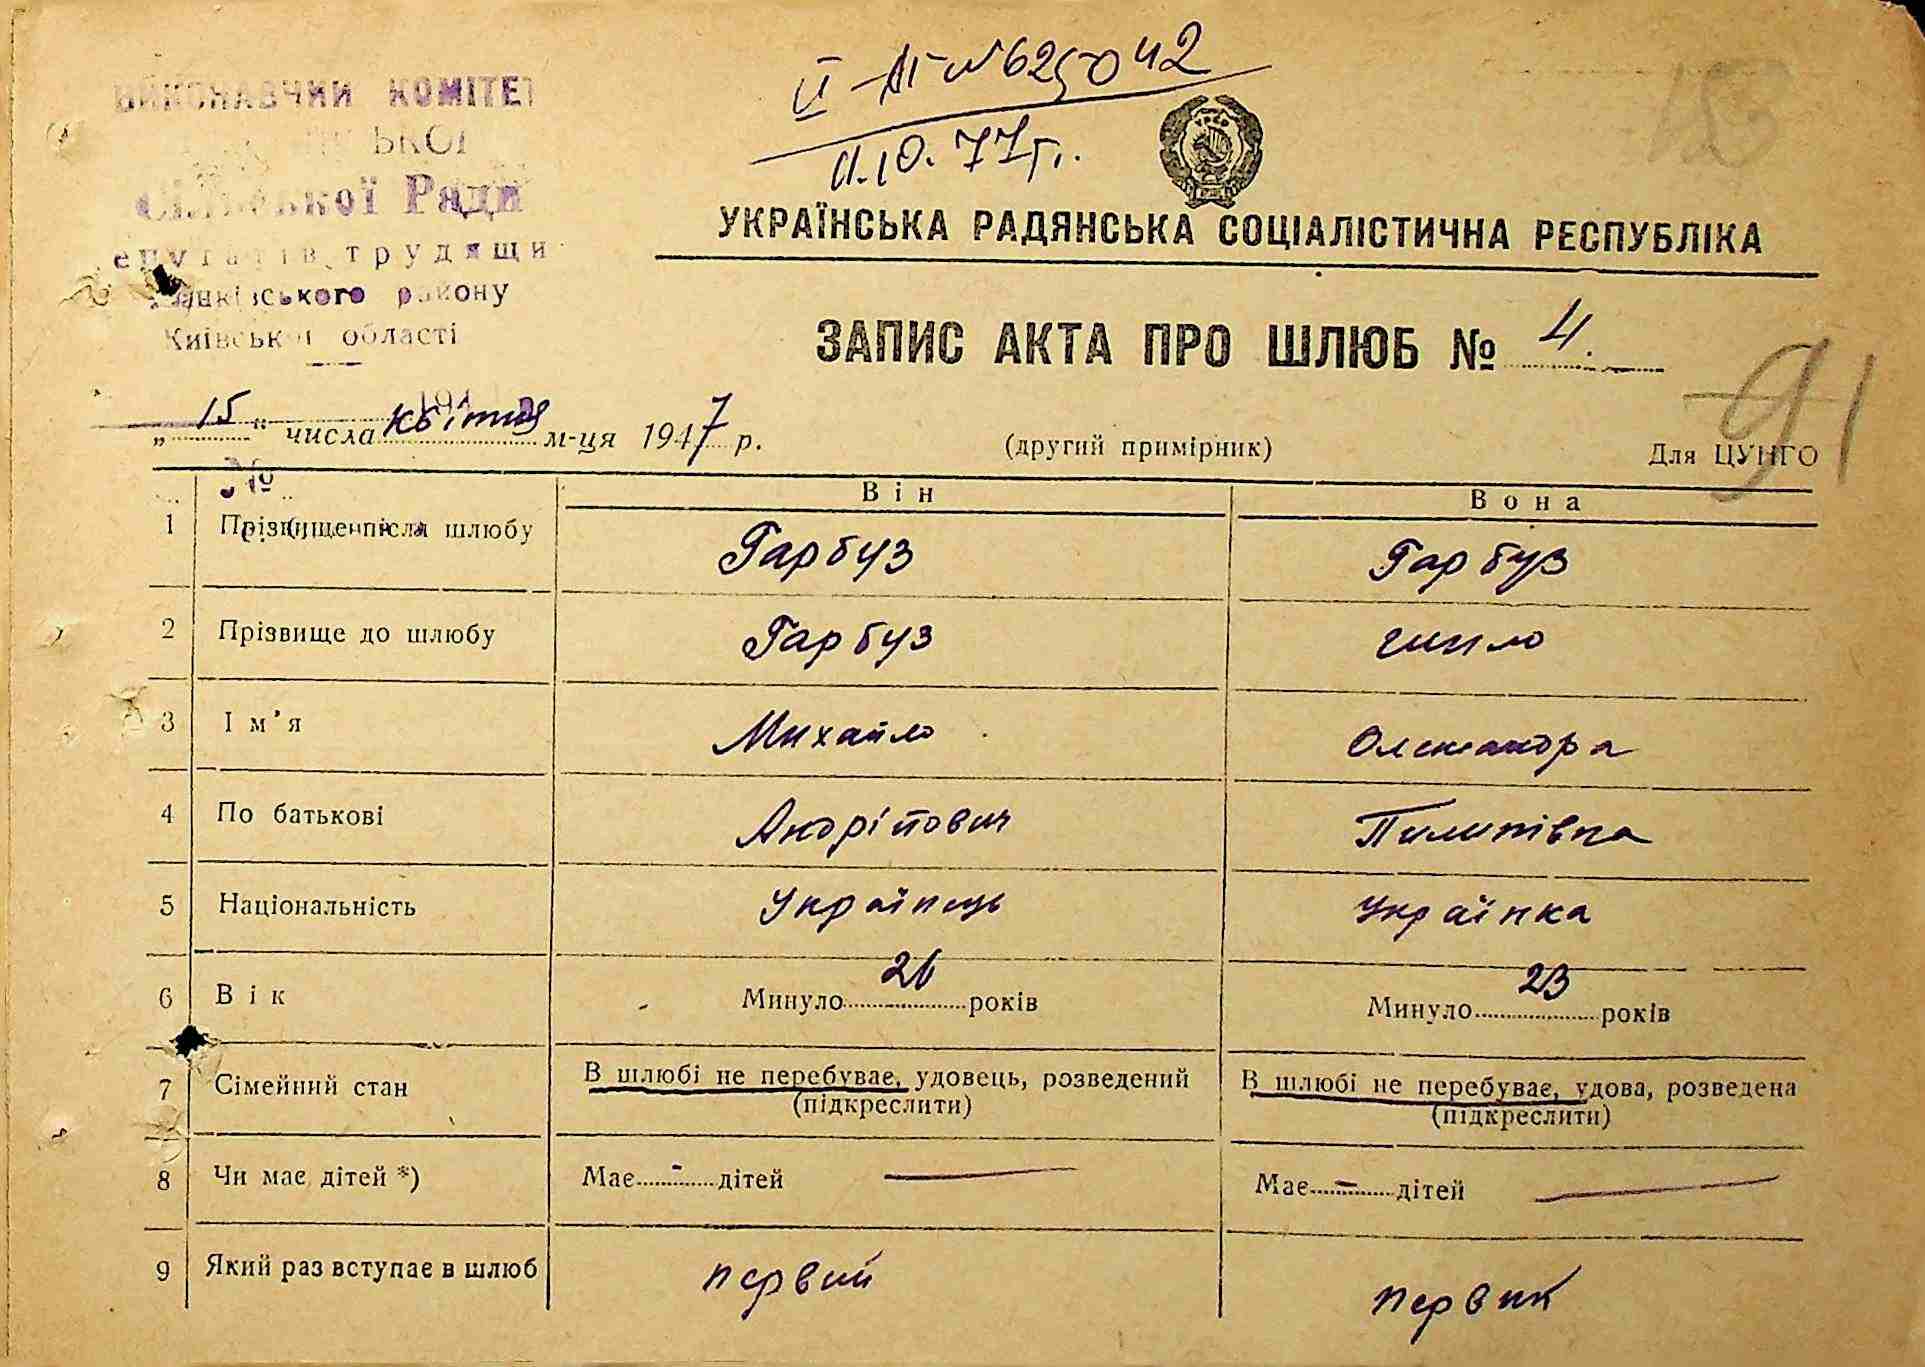 II-АГ №625042
11.10.77г.
ВИКОНАВЧИЙ КОМІТЕТ
СЬКОЇ
Сільської Ради
епутатів трудящи
Іванківського району
Київської області
УКРАЇНСЬКА РАДЯНСЬКА СОЦІАЛІСТИЧНА РЕСПУБЛІКА
ЗАПИС АКТА ПРО ШЛЮБ № 4.
91
„15“ числа квітня м-ця 1947 р. (другий примірник) Для ЦУНГО
№
Він Вона
1 Прізвище після шлюбу Гарбуз Гарбуз
2 Прізвище до шлюбу Гарбуз Шило
3 Ім'я Михайло Олександра
4 По батькові Андрійович Пилипівна
5 Національність Українець Українка
6 Вік Минуло 26 років Минуло 23 років
7 Сімейний стан В шлюбі не перебуває, удовець, розведений В шлюбі не перебуває, удова, розведена
(підкреслити) (підкреслити)
8 Чи має дітей *) Має - дітей — Має - дітей —
9 Який раз вступає в шлюб первий первий